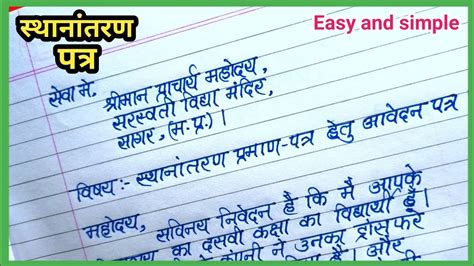 स्थानांतरण
पत्र
Easy and simple
सेवा में,
श्रीमान प्राचार्य महोदय,
सरस्वती विद्या मंदिर,
सागर, (म.प्र.)।
विषय :- स्थानांतरण प्रमाण-पत्र हेतु आवेदन पत्र
महोदय, सविनय निवेदन है कि मैं आपके
का दसवीं कक्षा का विद्यार्थी हूँ।
कंपनी ने उनका ट्रांसफर
है। और